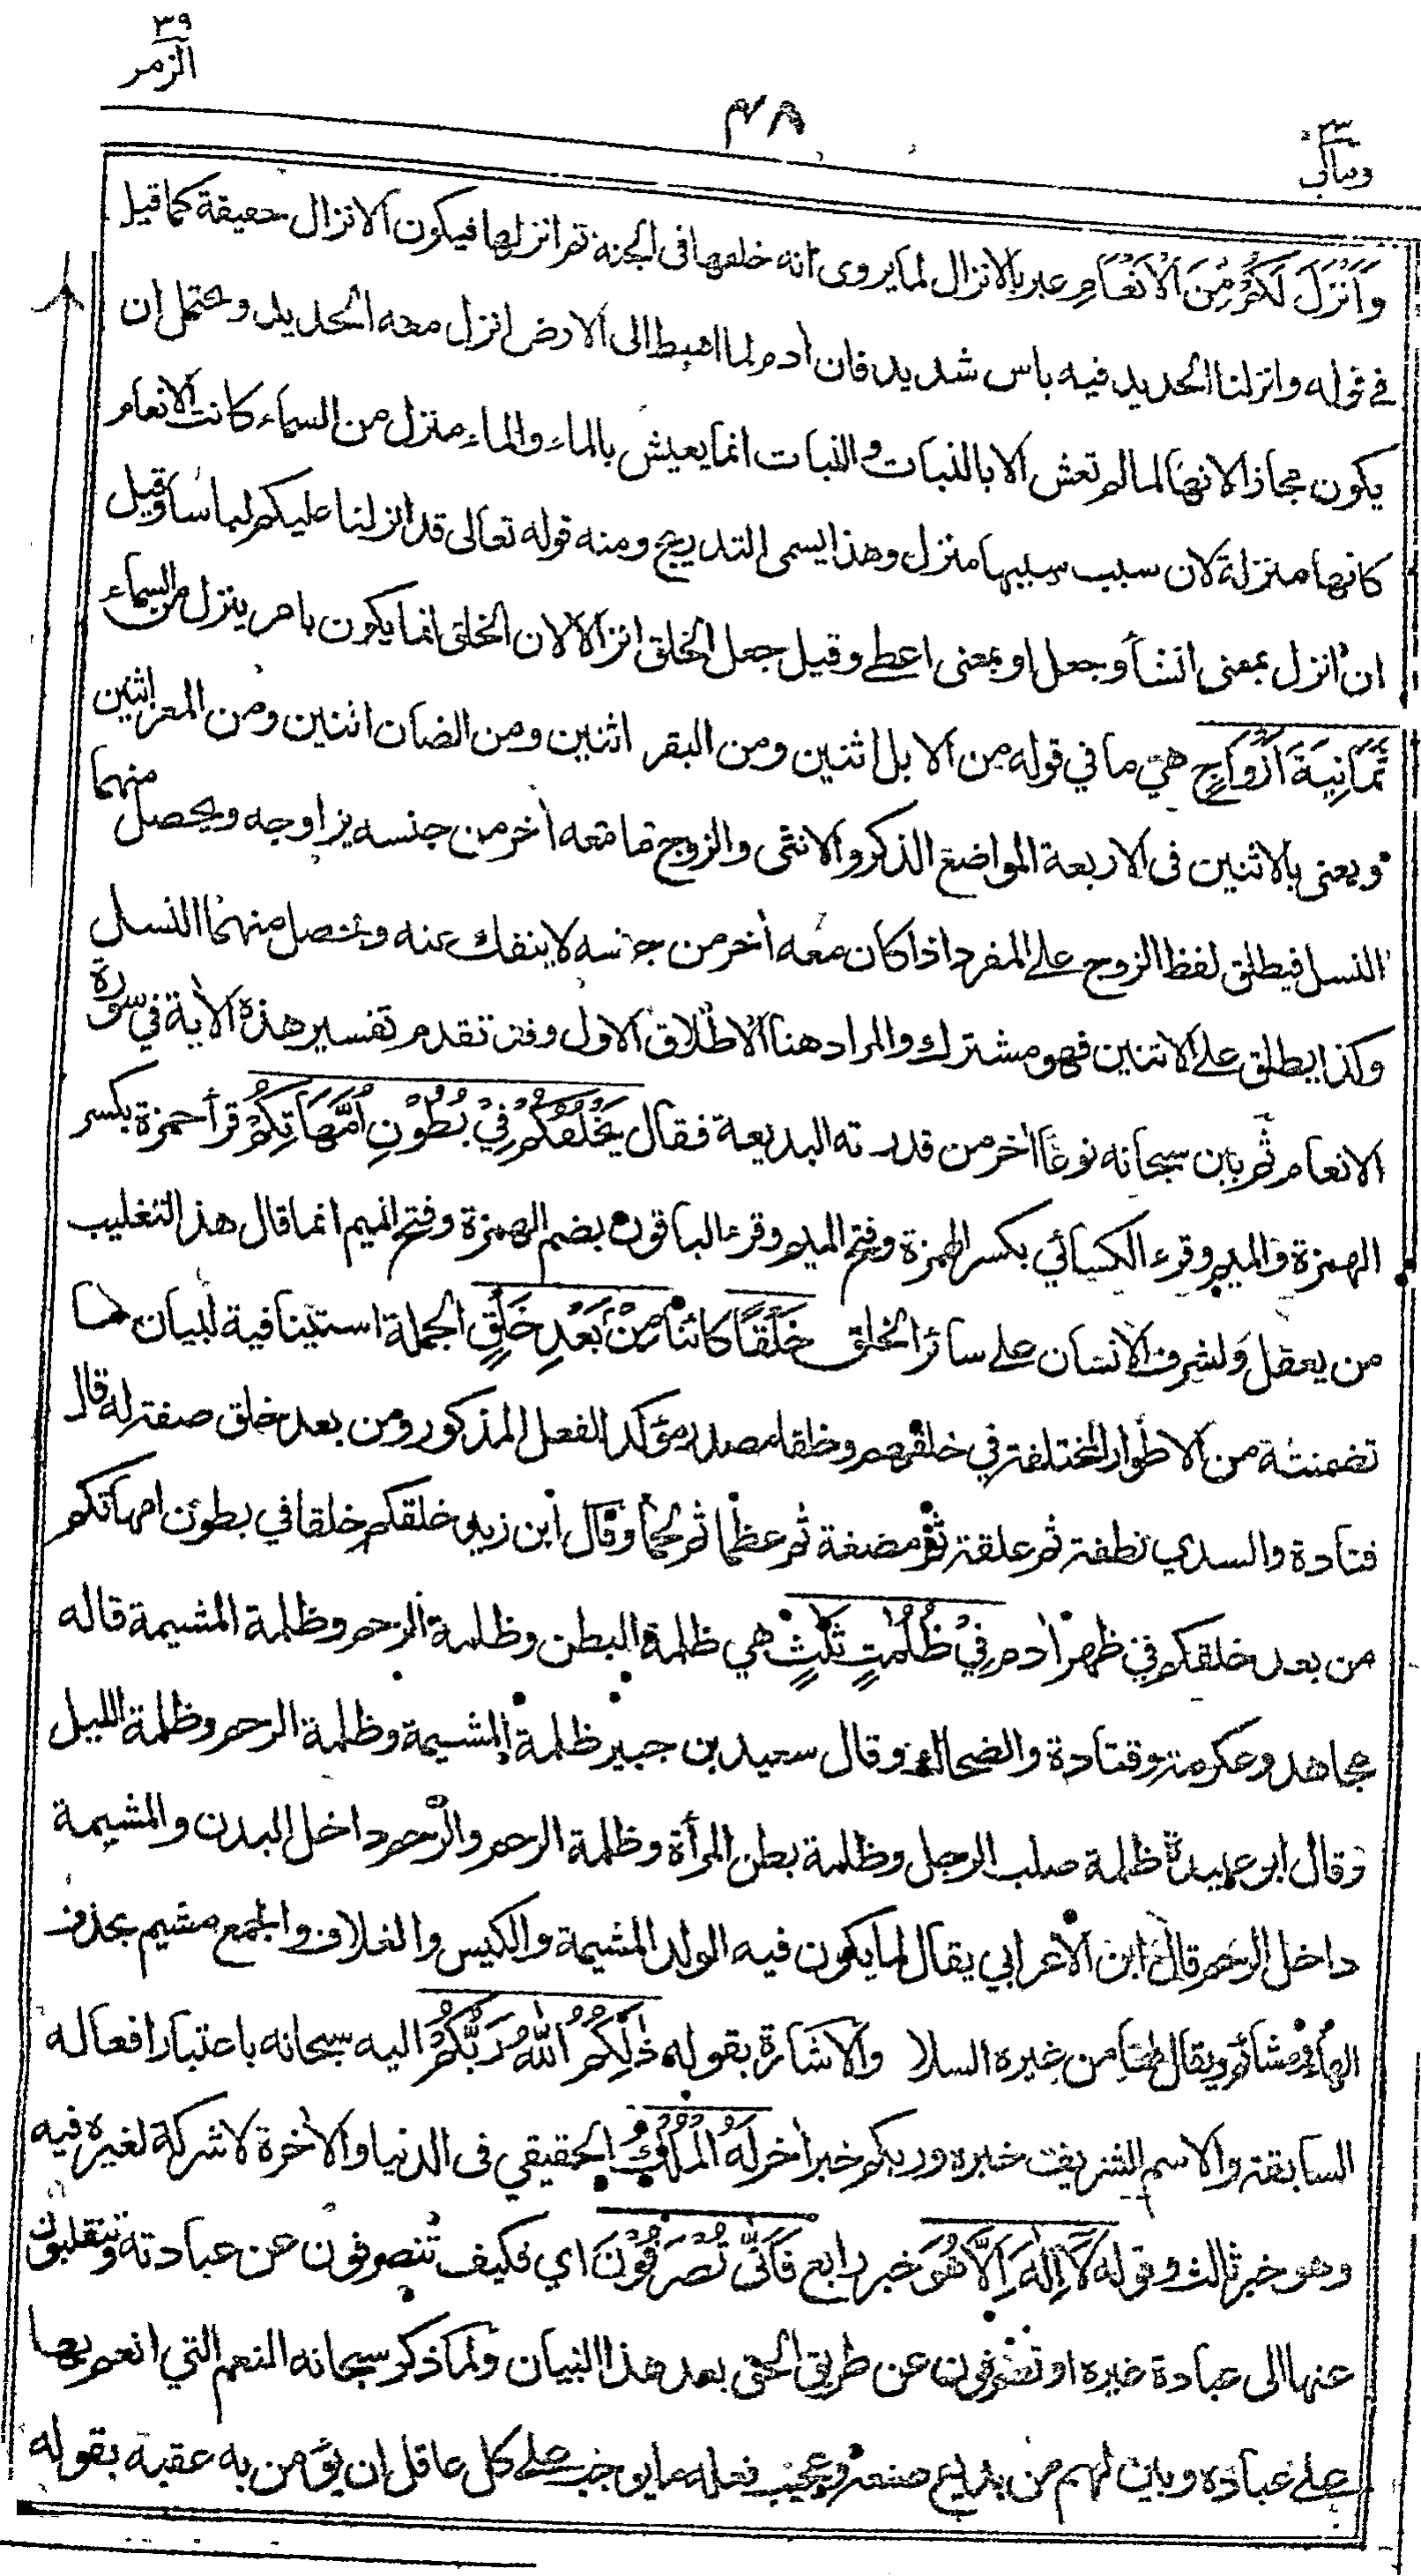 ٣٩
الزمر
٤٨
٢٣
ومالى
وَاَنْزَلَ لَكُمْ مِّنَ الْاَنْعَامِ عبر بالانزال لما يروى انه خلقها فى الجنة ثم انزلها فيكون الانزال حقيقة كما قيل
في قوله وانزلنا الحديد فيه باس شديد فان أدم لما اهبط الى الارض انزل معه الحديد ويحتمل ان
يكون مجازا لانها لما لم تعش الا بالنبات والنبات انما يعيش بالماء والماء منزل من السماء كانت الانعام
كانها منزلة لان سبب سببها منزل وهذا يسمى التدريج ومنه قوله تعالى قد انزلنا عليكم لباسا وقيل
ان انزل بمعنى انشأ وجعل او بمعنى اعطے وقيل جعل الخلق انزالا لان الخلق انما يكون بامر ينزل من السماء
ثَمَانِيَةَ اَزْوَاجٍ هي ما في قوله من الابل اثنين ومن البقر اثنين ومن الضان اثنين ومن المعز اثنين
ويعنى بالاثنين فى الاربعة المواضع الذكر والانثى والزوج ما معه أخر من جنسه يزاوجه ويحصل منهما
النسل فيطلق لفظ الزوج علے المفرد اذا كان معه أخر من جنسه لا ينفك عنه ويحصل منهما النسل
وكذا يطلق علے الاثنين فهو مشترك والمراد هنا الاطلاق الاول وقد تقدم تفسير هذه الأية في سورة
الانعام ثم بين سبحانه نوعا أخر من قدرته البديعة فقال يَخْلُقُكُمْ فِيْ بُطُوْنِ اُمَّهَاتِكُمْ قرأ حمزة بكسر
الهمزة والميم وقرء الكسائي بكسر الهمزة وفتح الميم وقرء الباقون بضم الهمزة وفتح الميم انما قال هذا لتغليب
من يعقل ولشرف الانسان علے سائر الخلق خَلْقًا كائنا مِّنْ بَعْدِ خَلْقٍ الجملة استينافية لبيان ما
تضمنته من الاطوار المختلفة في خلقهم وخلقا مصدر مؤكد للفعل المذكور ومن بعد خلق صفة له قال
قتادة والسدي نطفة ثم علقة ثم مضغة ثم عظما ثم لحما وقال ابن زيد خلقكم خلقا في بطون امهاتكم
من بعد خلقكم في ظهر أدم فِيْ ظُلُمٰتٍ ثَلٰثٍ هي ظلمة البطن وظلمة الرحم وظلمة المشيمة قاله
مجاهد وعكرمة وقتادة والضحاك وقال سعيد بن جبير ظلمة المشيمة وظلمة الرحم وظلمة الليل
وقال ابو عبيدة ظلمة صلب الرجل وظلمة بطن المرأة وظلمة الرحم والرحم داخل البدن والمشيمة
داخل الرحم قال ابن الاعرابي يقال لما يكون فيه الولد المشيمة والكيس والغلاف والجمع مشيم بحذف
الهاء ومشائم ويقال لها من غيره السلا والاشارة بقوله ذٰلِكُمُ اللّٰهُ رَبُّكُمْ اليه سبحانه باعتبار افعاله
السابقة والاسم الشريف خبره وربكم خبر أخر لَهُ الْمُلْكُ الحقيقي فى الدنيا والأخرة لا شركة لغيره فيه
وهو خبر ثالث وقوله لَا اِلٰهَ اِلَّا هُوَ خبر رابع فَاَنّٰى تُصْرَفُوْنَ اي فكيف تنصرفون عن عبادته وتنقلبون
عنها الى عبادة غيره او تصرفون عن طريق الحق بعد هذا البيان ولما ذكر سبحانه النعم التي انعم بها
علے عباده وبين لهم من بديع صنعه وعجيب فعله ما يوجب علے كل عاقل ان يؤمن به عقبه بقوله